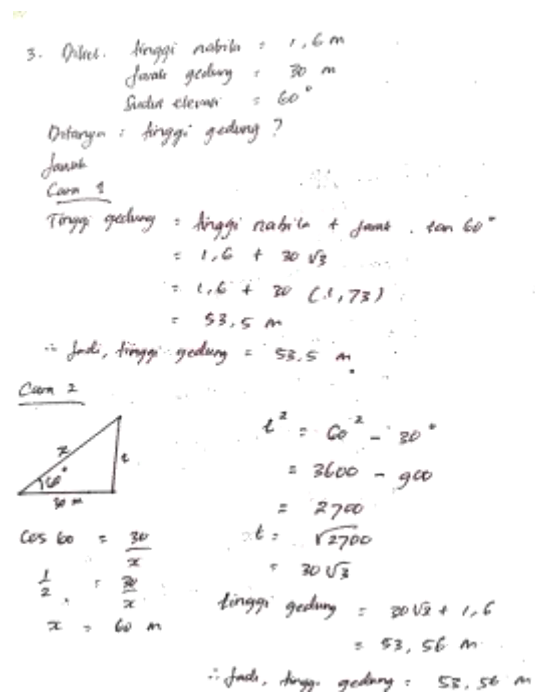 3. Diket. tinggi nabila = 1,6 m
Jarak gedung = 30 m
Sudut elevasi = 60°
Ditanya : tinggi gedung ?
Jawab
Cara 1
Tinggi gedung = tinggi nabila + jarak . tan 60°
= 1,6 + 30 √3
= 1,6 + 30 (1,73)
= 53,5 m
∴ Jadi, tinggi gedung = 53,5 m
Cara 2
x
60°
t
30 m
cos 60 = 30/x
1/2 = 30/x
x = 60 m
t² = 60² - 30°
= 3600 - 900
= 2700
t = √2700
= 30 √3
tinggi gedung = 30√3 + 1,6
= 53,56 m
∴ Jadi, tinggi gedung = 53,56 m